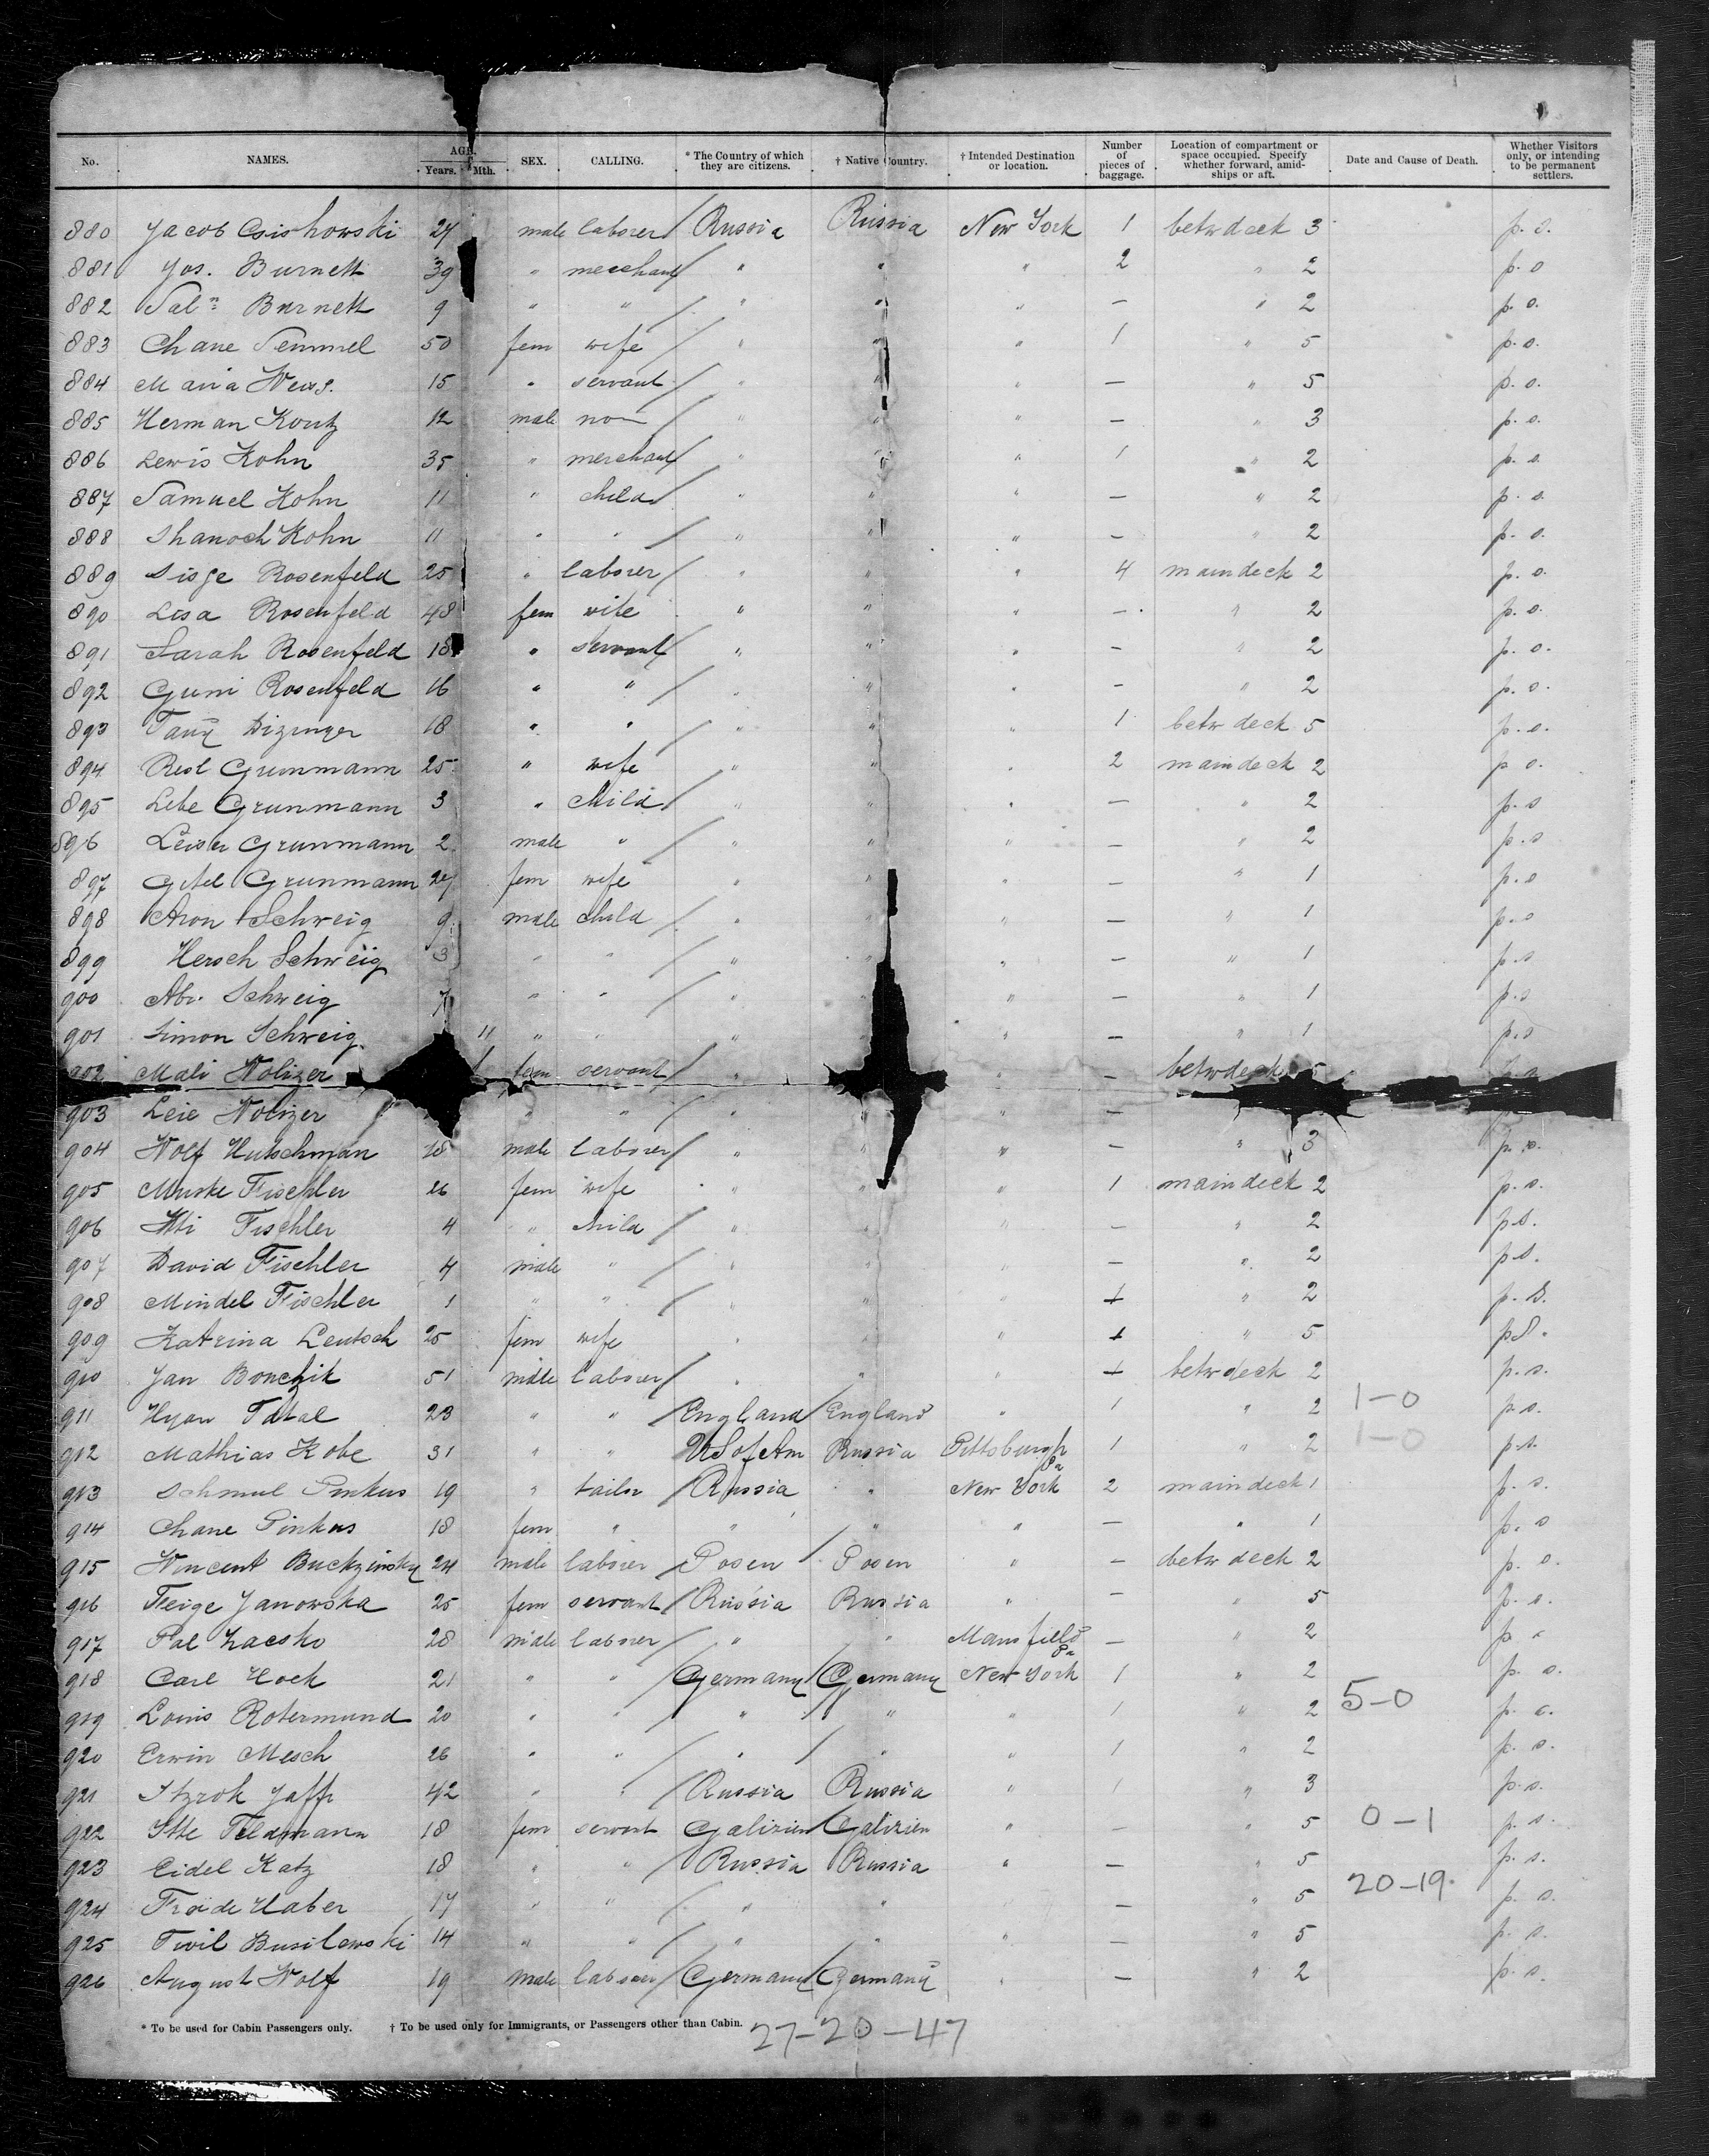 No. NAMES. AGE. Years. Mth. SEX. CALLING. * The Country of which they are citizens. † Native Country. † Intended Destination or location. Number of pieces of baggage. Location of compartment or space occupied. Specify whether forward, amidships or aft. Date and Cause of Death. Whether Visitors only, or intending to be permanent settlers.
880 Jacob 27 male laborer Russia Russia New York 1 betw deck 3 p. s.
881 Jos. Burnett 39 " merchant " " " 2 " 2 p. s
882 Sal Burnett 9 " " " " " — " 2 p. s.
883 Chane Semmel 50 fem wife " " " 1 " 5 p. s.
884 Maria 15 " servant " " " — " 5 p. s.
885 Herman 12 male non " " " — " 3 p. s.
886 Lewis Kohn 35 " merchant " " " 1 " 2 p. s.
887 Samuel Kohn 11 " child " " " — " 2 p. s.
888 Shanoch Kohn 11 " " " " " — " 2 p. s.
889 Rosenfeld 25 " laborer " " " 4 maindeck 2 p. s.
890 Lisa Rosenfeld 48 fem wife " " " — " 2 p. s.
891 Sarah Rosenfeld 18 " servant " " " — " 2 p. s.
892 Rosenfeld 16 " " " " " — " 2 p. s.
893 18 " " " " " 1 betw deck 5 p. s.
894 Resl Grunmann 25 " wife " " " 2 maindeck 2 p s.
895 Lebe Grunmann 3 " child " " " — " 2 p. s
896 Grunmann 2 male " " " " — " 2 p. s
897 Gitel Grunmann 27 fem wife " " " — " 1 p. s
898 Aron Schweig 9 male child " " " — " 1 p. s
899 Hersch Schweig 3 " " " " " — " 1 p. s
900 Abr. Schweig 7 " " " " " — " 1 p. s
901 Simon Schweig 11 " " " " — " 1 p. s
902 Mali Wolizer fem servant " " — betw deck 5
903 Leie Wolizer " " " " —
904 Wolf Hutschman 28 male laborer " " " — " 3 p. s.
905 Fischler 26 fem wife " " " 1 maindeck 2 p. s.
906 Fischler 4 " child " " " — " 2 p. s.
907 David Fischler 4 male " " " " — " 2 p. s.
908 Mindel Fischler 1 " " " " " " 2 p. s.
909 Katrina Leutsch 25 fem wife " " " " 5 p. s.
910 Jan Bonchik 51 male laborer " " " betw deck 2 p. s.
911 23 " " England England " 1 " 2 1-0 p. s.
912 Mathias Kobe 31 " " U S of Am Russia Pittsburgh Pa 1 " 2 1-0 p. s.
913 Schmul Pinkus 19 " tailor Russia " New York 2 maindeck 1 p. s.
914 Chane Pinkus 18 fem " " " " — " 1 p. s
915 Vincent Buckzinsky 24 male laborer Posen Posen " — betw deck 2 p. s.
916 Feige Janowska 25 fem servant Russia Russia " — " 5 p. s.
917 Pal 28 male laborer " " Mansfield Pa — " 2 p. s
918 Carl Hoek 21 " " Germany Germany New York 1 " 2 p. s.
919 Louis Rotermund 20 " " " " " 1 " 2 5-0 p. s.
920 Erwin Mesch 26 " " " " " 1 " 2 p. s.
921 Itzrok Jaffe 42 " " Russia Russia " 1 " 3 p. s.
922 Itte Feldmann 18 fem servant Galizien Galizien " — " 5 0-1 p. s.
923 Eidel Katz 18 " " Russia Russia " — " 5 p. s.
924 Haber 17 " " " " — " 5 20-19 p. s.
925 Busilewski 14 " " " " " — " 5 p. s.
926 August Wolf 19 male laborer Germany Germany " — " 2 p. s.
* To be used for Cabin Passengers only. † To be used only for Immigrants, or Passengers other than Cabin.
27-20-47